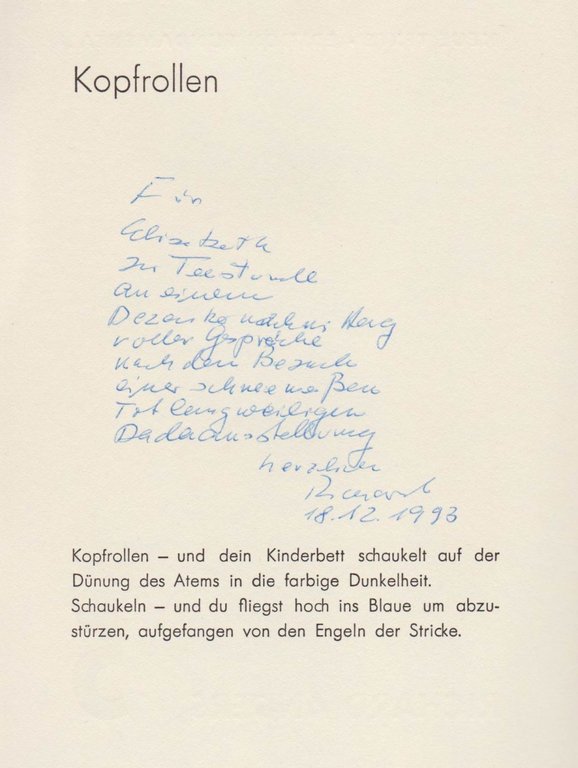 Kopfrollen
Für
Elisabeth
zu Teestunde
an einem
Dezembernachmittag
voller Gespräche
nach dem Besuch
einer schneenaßen
Totlangweiligen
Dadaausstellung
herzlich
18.12.1993
Kopfrollen – und dein Kinderbett schaukelt auf der
Dünung des Atems in die farbige Dunkelheit.
Schaukeln – und du fliegst hoch ins Blaue um abzu-
stürzen, aufgefangen von den Engeln der Stricke.